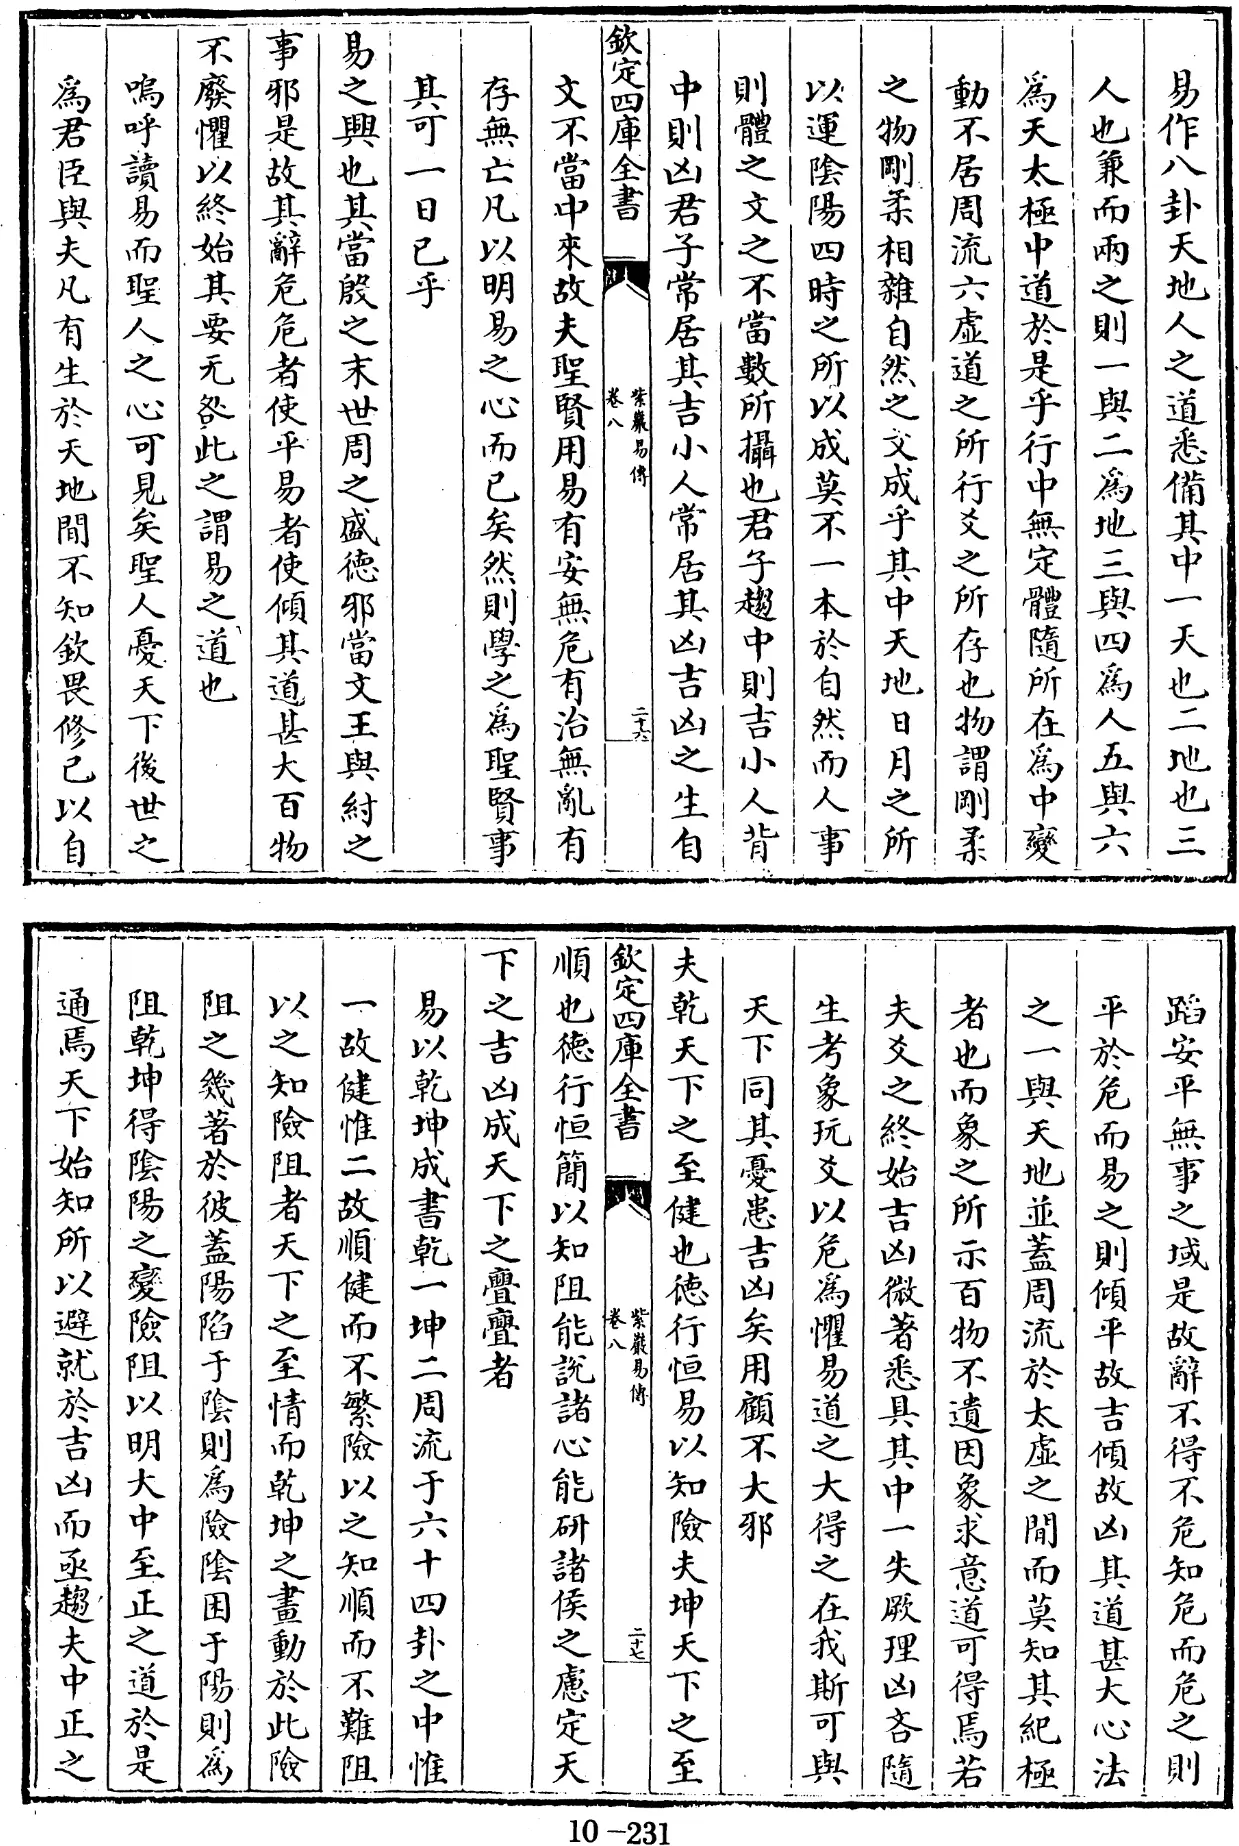 易作八卦天地人之道悉備其中一天也二地也三
人也兼而兩之則一與二爲地三與四爲人五與六
爲天太極中道於是乎行中無定體隨所在爲中變
動不居周流六虛道之所行爻之所存也物謂剛柔
之物剛柔相雜自然之文成乎其中天地日月之所
以運陰陽四時之所以成莫不一本於自然而人事
則體之文之不當數所攝也君子趨中則吉小人背
中則凶君子常居其吉小人常居其凶吉凶之生自
欽定四庫全書
紫巖易傳
卷八
二十六
文不當中來故夫聖賢用易有安無危有治無亂有
存無亡凡以明易之心而已矣然則學之爲聖賢事
其可一日已乎
易之興也其當殷之末世周之盛德邪當文王與紂之
事邪是故其辭危危者使平易者使傾其道甚大百物
不廢懼以終始其要无咎此之謂易之道也
嗚呼讀易而聖人之心可見矣聖人憂天下後世之
爲君臣與夫凡有生於天地間不知欽畏修己以自
蹈安平無事之域是故辭不得不危知危而危之則
平於危而易之則傾平故吉傾故凶其道甚大心法
之一與天地並蓋周流於太虛之間而莫知其紀極
者也而象之所示百物不遺因象求意道可得焉若
夫爻之終始吉凶微著悉具其中一失厥理凶吝隨
生考象玩爻以危爲懼易道之大得之在我斯可與
天下同其憂患吉凶矣用顧不大邪
夫乾天下之至健也德行恒易以知險夫坤天下之至
欽定四庫全書
紫巖易傳
卷八
二十七
順也德行恒簡以知阻能說諸心能研諸侯之慮定天
下之吉凶成天下之亹亹者
易以乾坤成書乾一坤二周流于六十四卦之中惟
一故健惟二故順健而不繁險以之知順而不難阻
以之知險阻者天下之至情而乾坤之畫動於此險
阻之幾著於彼蓋陽陷于陰則爲險陰困于陽則爲
阻乾坤得陰陽之變險阻以明大中至正之道於是
通焉天下始知所以避就於吉凶而亟趨夫中正之
10-231